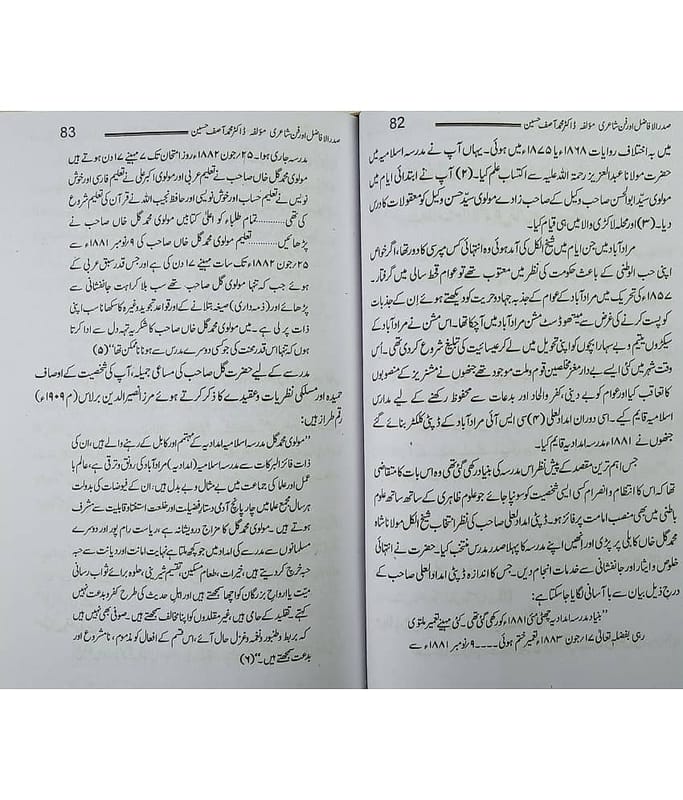 82 صدر الافاضل اور فن شاعری مؤلفہ: ڈاکٹر محمد آصف حسین
میں بہ اختلاف روایات ۱۸۶۸ء یا ۱۸۷۵ء میں ہوئی۔ یہاں آپ نے مدرسہ اسلامیہ میں
حضرت مولانا عبدالعزیز رحمۃ اللہ علیہ سے اکتساب علم کیا۔ (۲) آپ نے ابتدائی ایام میں
مولوی سیّد ابوالحسن صاحب وکیل کے صاحب زادے مولوی سیّد حسن وکیل کو معقولات کا درس
دیا۔ (۳) اور محلہ لاکڑی والا میں ہی قیام کیا۔
مراد آباد میں جن ایام میں شیخ الکل کی آمد ہوئی وہ انتہائی کس مپرسی کا دور تھا، اگر خواص
اپنی حب الوطنی کے باعث حکومت کی نظر میں معتوب تھے تو عوام قحط سالی میں گرفتار۔
۱۸۵۷ء کی تحریک میں مراد آباد کے عوام کے جذبہ جہاد و حریت کو دیکھتے ہوئے اِن کے جذبات
کو پست کرنے کی غرض سے میتھوڈسٹ مشن مراد آباد میں آچکا تھا۔ اس مشن نے مراد آباد کے
سیکڑوں یتیم و بے سہارا بچوں کو اپنی تحویل میں لے کر عیسائیت کی تبلیغ شروع کر دی تھی۔ اُس
وقت شہر میں کئی ایسے بیدار مغز مخلصین قوم و ملت موجود تھے جنھوں نے مشنریز کے منصوبوں
کا تعاقب کیا اور عوام کو بے دینی، کفر و الحاد اور بدعات سے محفوظ رکھنے کے لیے مدارس
اسلامیہ قایم کیے۔ اسی دوران امداد العلی (۴) سی ایس آئی مراد آباد کے ڈپٹی کلکٹر بنائے گئے
جنھوں نے ۱۸۸۱ء مدرسہ امدادیہ قایم کیا۔
جس اہم ترین مقصد کے پیش نظر اس مدرسہ کی بنیاد رکھی گئی تھی وہ اس بات کا متقاضی
تھا کہ اس کا انتظام و انصرام کسی ایسی شخصیت کو سونپا جائے جو علوم ظاہری کے ساتھ ساتھ علوم
باطنی میں بھی منصب امامت پر فائز ہو۔ ڈپٹی امداد العلی صاحب کی نظر انتخاب شیخ الکل مولانا شاہ
محمد گل خاں کابلی پر پڑی اور انھیں اپنے مدرسہ کا پہلا صدر مدرس منتخب کیا۔ حضرت نے انتہائی
خلوص و ایثار اور جانفشانی سے خدمات انجام دیں۔ جس کا اندازہ ڈپٹی امداد العلی صاحب کے
درج ذیل بیان سے بآسانی لگایا جا سکتا ہے:
”بنیاد مدرسہ امدادیہ چھٹی مئی ۱۸۸۱ء کو رکھی گئی تھی۔ کئی مہینے تعمیر ملتوی
رہی بفضلہ تعالیٰ ۱۷/جون ۱۸۸۳ء تعمیر ختم ہوئی۔۔۔۔ ۹/نومبر ۱۸۸۱ء سے
83 صدر الافاضل اور فن شاعری مؤلفہ: ڈاکٹر محمد آصف حسین
مدرسہ جاری ہوا۔ ۲۵/جون ۱۸۸۲ء روز امتحان تک ۷ مہینے ۱۷ دن ہوتے ہیں
مولوی محمد گل خاں صاحب نے تعلیم عربی اور مولوی اکبر علی نے تعلیم فارسی اور خوش
نویس نے تعلیم حساب اور خوش نویسی اور حافظ نجیب اللہ نے قرآن کی تعلیم شروع
کی تھی............تمام طلباء کو اعلیٰ کتابیں مولوی محمد گل خاں صاحب نے
پڑھائیں............تعلیم مولوی محمد گل خاں صاحب کی ۹/نومبر ۱۸۸۱ء سے
۲۵/جون ۱۸۸۲ء تک سات مہینے ۱۷ دن کی ہے اور جس قدر سبق عربی کے
ہوئے ہیں جب کہ تنہا مولوی گل صاحب تھے سب بلا کراہت جانفشانی سے
پڑھائے اور (ذمہ داری) صیغہ بتلانے کے اور قواعد تجوید وغیرہ کا سکھانا سب اپنی
ذات پر لی ہے۔ میں مولوی محمد گل خاں صاحب کا شکریہ تہہ دل سے ادا کرتا
ہوں کہ تنہا اس قدر محنت کی جو کسی دوسرے مدرس سے ہونا ناممکن تھا“ (۵)
مدرسے کے لیے حضرت گل صاحب کی مساعی جمیلہ، آپ کی شخصیت کے اوصاف
حمیدہ اور مسلکی نظریات و عقیدے کا ذکر کرتے ہوئے مرزا نصیر الدین برلاس (م ۱۹۰۹ء)
رقم طراز ہیں:
”مولوی محمد گل مدرسہ اسلامیہ امدادیہ کے مہتمم اور کابل کے رہنے والے ہیں، ان کی
ذات فائز البرکات سے مدرسہ اسلامیہ (امدادیہ) مراد آباد کی رونق و ترقی ہے، عالم با
عمل اور علما کی جماعت میں بے مثال و بے بدل ہیں: ان کے فیوضات کی بدولت
ہر سال مجمع علما میں چار پانچ آدمی دستار فضیلت اور خلعت استثنا و قابلیت سے مشرف
ہوتے ہیں۔ مولوی محمد گل کا مزاج درویشانہ ہے، ریاست رام پور اور دوسرے
مسلمانوں سے مدرسے کی امداد میں جو کچھ ملتا ہے نہایت امانت اور دیانت سے حبہ
حبہ خرچ کر دیتے ہیں، خیرات، طعام مسکین، تقسیم شیرینی، حلوہ برائے ثواب رسانی
میّت یا ارواح بزرگان کو اچھا سمجھتے ہیں اور اہل حدیث کی طرح کفر و بدعت نہیں
کہتے۔ تقلید کے حامی ہیں، غیر مقلدوں کو اپنا مخالف سمجھتے ہیں۔ صوفی بھی نہیں ہیں
کہ بربط و طنبور و دف و غزل حال آئے، اس قسم کے افعال کو مذموم، نامشروع اور
بدعت سمجھتے ہیں۔“ (۶)